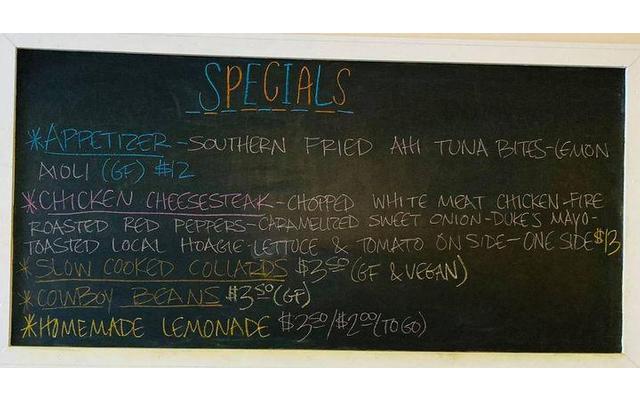 SPECIALS
*APPETIZER-SOUTHERN FRIED AHI TUNA BITES-LEMON
AIOLI (GF) $12
*CHICKEN CHEESESTEAK-CHOPPED WHITE MEAT CHICKEN-FIRE
ROASTED RED PEPPERS-CARAMELIZED SWEET ONION-DUKE'S MAYO-
TOASTED LOCAL HOAGIE-LETTUCE & TOMATO ON SIDE-ONE SIDE $13
*SLOW COOKED COLLARDS $3.50 (GF & VEGAN)
*COWBOY BEANS $3.50 (GF)
*HOMEMADE LEMONADE $3.50/$2.00 (TO GO)